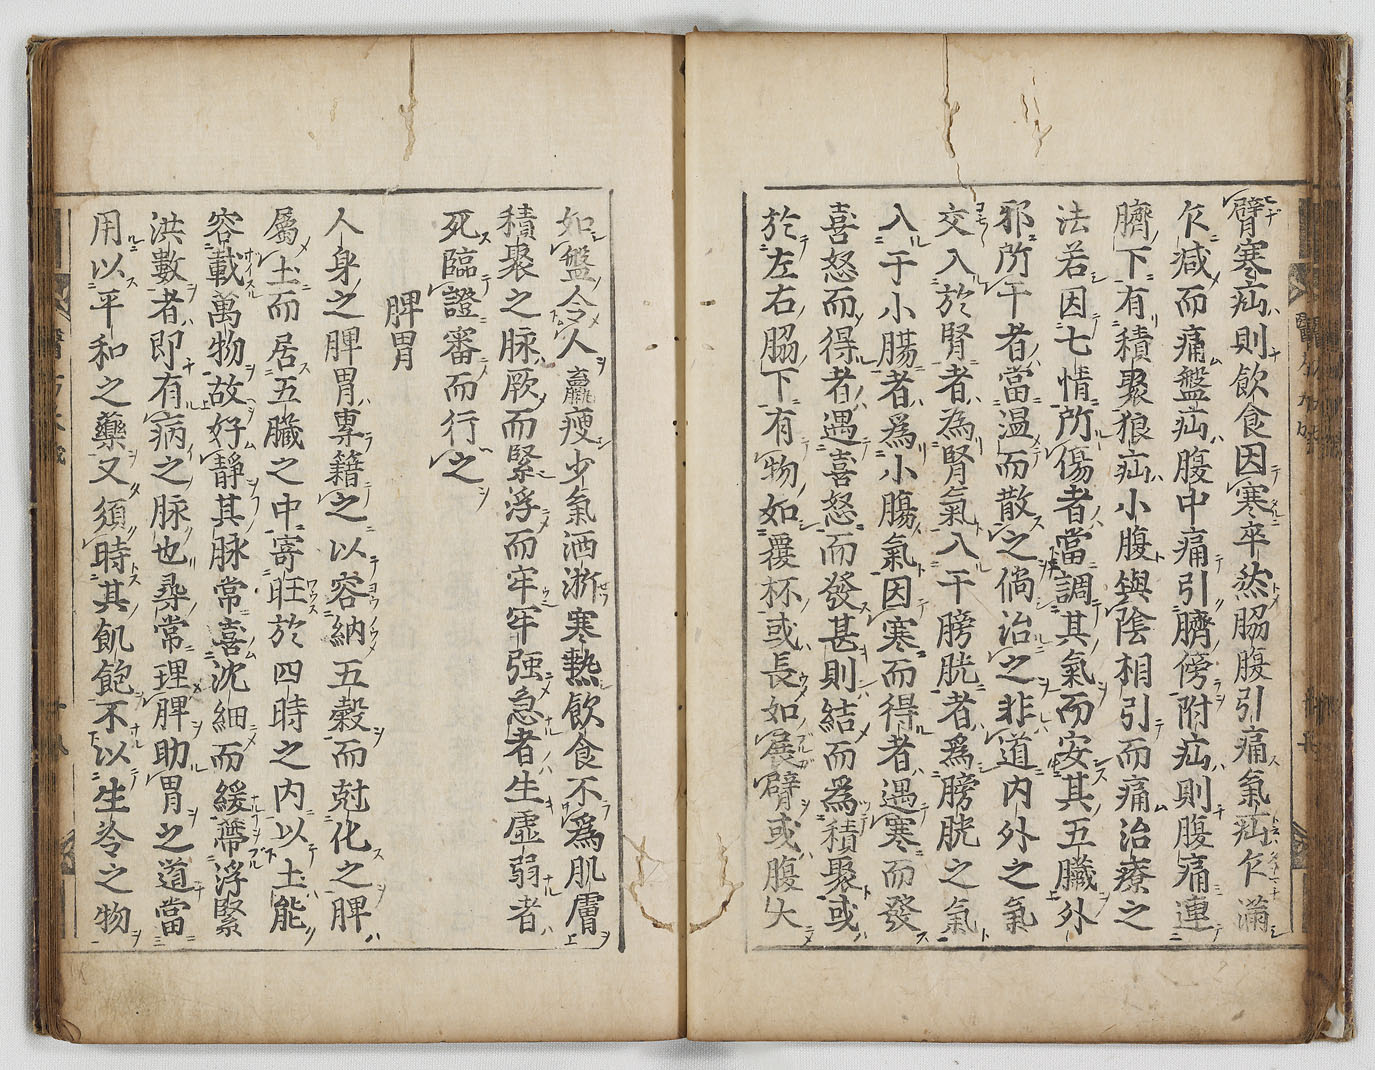 臂寒疝則飲食因寒卒然脇腹引痛氣疝乍滿
乍減而痛盤疝腹中痛引臍傍附疝則腹痛連
臍下有積聚狼疝小腹與陰相引而痛治療之
法若因七情所傷者當調其氣而安其五臟外
邪所干者當温而散之倘治之非道内外之氣
交入於腎者為腎氣入于膀胱者爲膀胱之氣
入于小腸者爲小腸氣因寒而得者遇寒而發
喜怒而得者遇喜怒而發甚則結而爲積聚或
於左右脇下有物如覆杯或長如展臂或腹大
如盤令人羸瘦少氣洒淅寒熱飲食不爲肌膚
積聚之脉厥而緊浮而牢牢强急者生虚弱者
死臨證審而行之
脾胃
人身之脾胃專籍之以容納五穀而尅化之脾
屬土而居五臟之中寄旺於四時之内以土能
容載萬物故好靜其脉常喜沈細而緩帶浮緊
洪數者即有病之脉也尋常理脾助胃之道當
用以平和之藥又須時其飢飽不以生冷之物